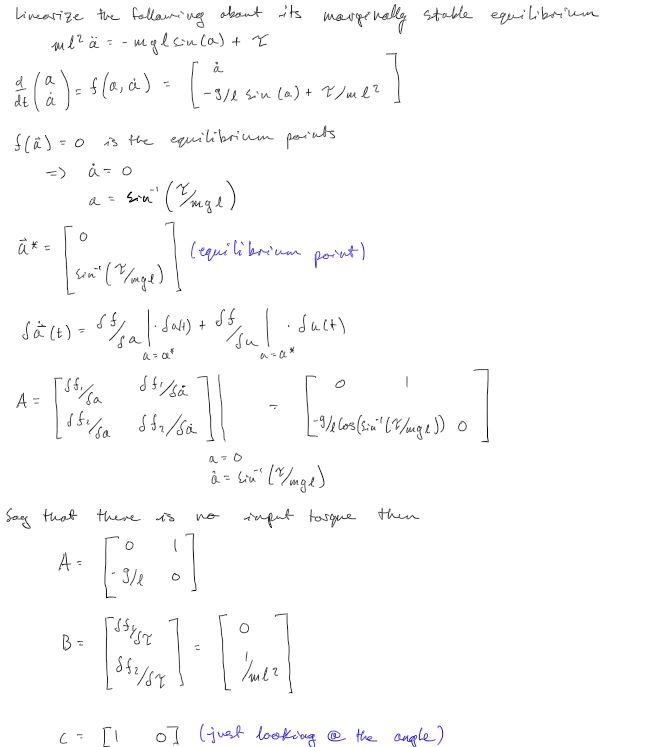 Linearize the following about its marginally stable equilibrium
ml² ä = -mgl sin(a) + τ
d/dt (a ȧ) = f(a, ȧ) = [ȧ -g/l sin(a) + τ/ml²]
f(a⃗) = 0 is the equilibrium points
=> ȧ = 0
a = sin⁻¹(τ/mgl)
a⃗* = [0 sin⁻¹(τ/mgl)] (equilibrium point)
δa⃗̇(t) = δf/δa |a=a* · δa(t) + δf/δu |a=a* · δu(t)
A = [δf₁/δa δf₁/δȧ δf₂/δa δf₂/δȧ] | = [0 1 -g/l cos(sin⁻¹(τ/mgl)) 0]
a = 0
ȧ = sin⁻¹(τ/mgl)
Say that there is no input torque then
A = [0 1 -g/l 0]
B = [δf₁/δτ δf₂/δτ] = [0 1/ml²]
C = [1 0] (just looking @ the angle)